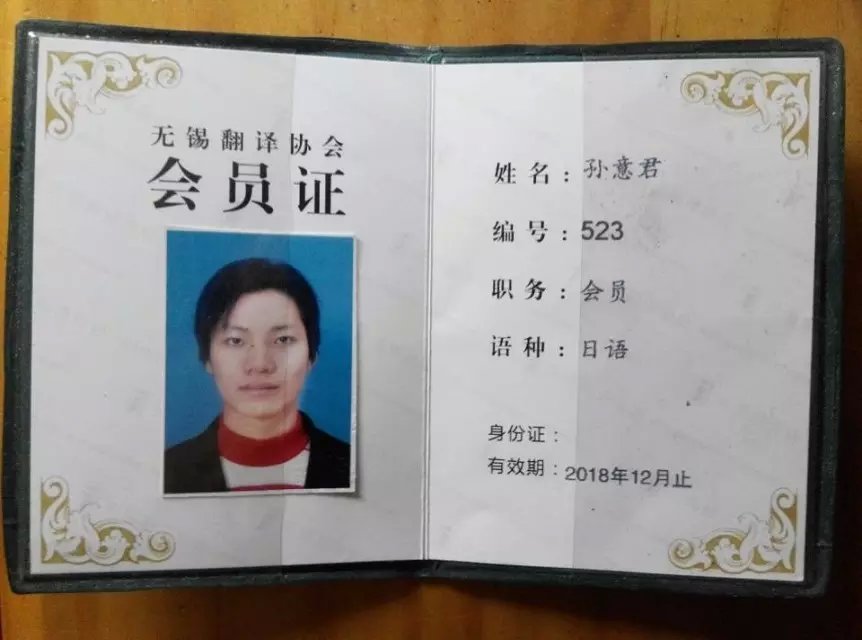 无锡翻译协会
会员证
姓名：孙意君
编号：523
职务：会员
语种：日语
身份证：
有效期：2018年12月止